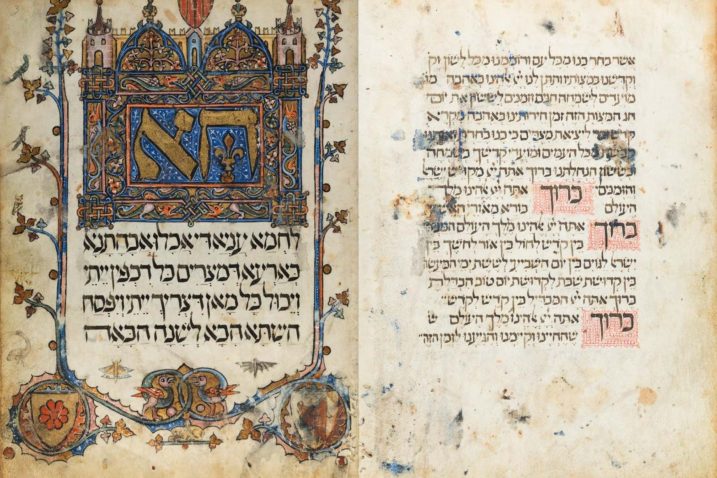 אשר בחר בנו מכל עם ורוממנו מכל לשון וק
וקדשנו במצותיו ותתן לנו יי אלהינו באהבה מו
מועדים לשמחה חגים וזמנים לששון את יום
חג המצות הזה זמן חירותינו באהבה מקרא
קדש זכר ליציאת מצרים כי בנו בחרת ואותנו
קדשת מכל העמים ומועדי קדשך בשמחה
ובששון הנחלתנו ברוך אתה יי מקדש ישרא
והזמנים ברוך אתה יי אלהינו מלך
העולם בורא מאורי
ברוך אתה יי אלהינו מלך העולם המב
בין קדש לחול בין אור לחשך בין
ישראל לגוים בין יום השביעי לששת ימי המעשה
בין קדושת שבת לקדושת יום טוב הבדלת
ברוך אתה יי המבדיל בין קדש לקדש
ברוך אתה יי אלהינו מלך העולם ש
שהחיינו וקיימנו והגיענו לזמן הזה
הא
לחמא עניא די אכלו אבהתנא
בארעא דמצרים כל דכפין ייתי
וייכול כל מאן דצריך ייתי ויפסח
השתא הכא לשנה הבאה